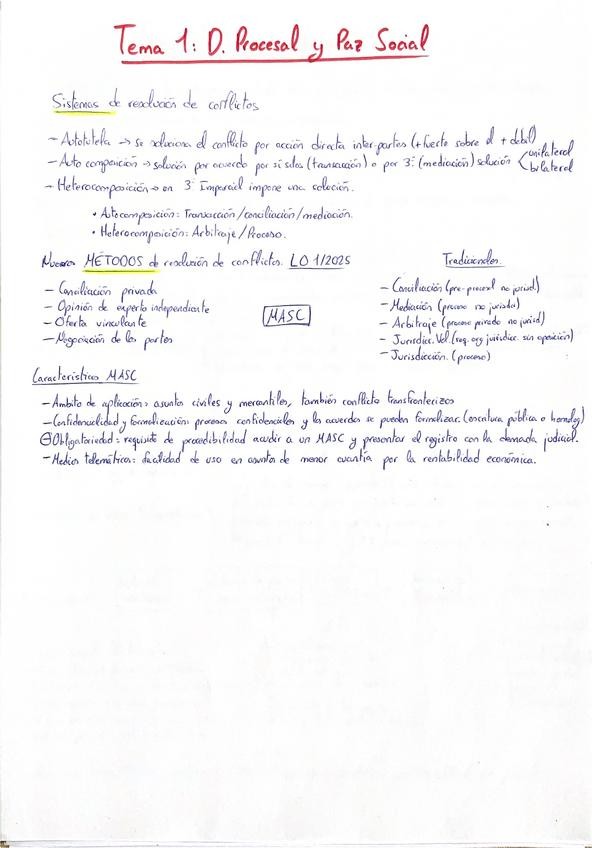 Tema 1: D. Procesal y Paz Social
Sistemas de resolución de conflictos
- Autotutela → se soluciona el conflicto por acción directa inter-partes (+fuerte sobre el + debil)
- Auto composición → solución por acuerdo por sí solos (transacción) o por 3º (mediación) solución < unilateral
bilateral
- Heterocomposición → un 3º Imparcial impone una solución.
• Autocomposición: Transacción/conciliación/mediación.
• Heterocomposición: Arbitraje/Proceso.
Nuevos MÉTODOS de resolución de conflictos. LO 1/2025
- Conciliación privada
- Opinión de experto independiente
- Oferta vinculante
- Negociación de las partes
MASC
Tradicionales.
- Conciliación (pre-procesal no jurisd.)
- Mediación (proceso no jurisd.)
- Arbitraje (proceso privado no jurisd)
- Jurisdicc. Vol. (req. org jurisdicc. sin oposición)
- Jurisdicción. (proceso)
Características MASC
- Ámbito de aplicación: asuntos civiles y mercantiles, también conflicto transfronterizos
- Confidencialidad y formalización: procesos confidenciales y los acuerdos se pueden formalizar. (escritura pública o homolog)
Obligatoriedad: requisito de procedibilidad acudir a un MASC y presentar el registro con la demanda judicial.
- Medios telemáticos: facilidad de uso en asuntos de menor cuantía por la rentabilidad económica.